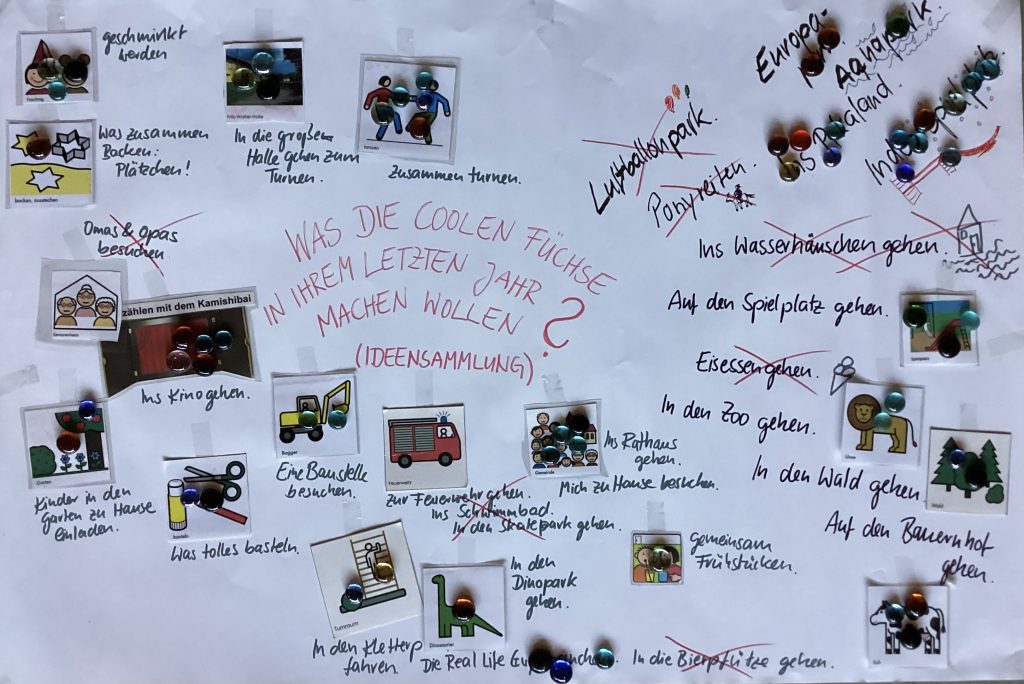 geschminkt
werden
Was zusammen
Backen:
Plätzchen!
backen, ausstechen
Fritz-Walter-Halle
In die großem
Halle gehen zum
Turnen.
tanzen
Zusammen turnen.
Europa-
park.
Aquapark.
Luftballonpark.
Ponyreiten.
Ins Wasserhäuschen gehen.
Auf den Spielplatz gehen.
Spielplatz
Eisessen gehen.
In den Zoo gehen.
Löwe
In den Wald gehen.
Wald
Auf den Bauernhof
gehen.
Kuh
Omas & Opas
besuchen.
Seniorenheim
zählen mit dem Kamishibai
Ins Kino gehen.
WAS DIE COOLEN FÜCHSE
IN IHREM LETZTEN JAHR
MACHEN WOLLEN?
(IDEENSAMMLUNG)
Garten
Kinder in den
Garten zu Hause
Einladen.
basteln
Was tolles basteln.
Bagger
Eine Baustelle
besuchen.
Feuerwehr
Zur Feuerwehr gehen.
Ins Schwimmbad.
In den Skatepark gehen.
Gemeinde
Ins Rathaus
gehen.
Mich zu Hause besuchen.
Turnraum
In den Kletterp
fahren.
Dinosaurier
In den
Dinopark
gehen.
gemeinsam
Frühstücken.
Die Real Life
In die Bierpfütze gehen.